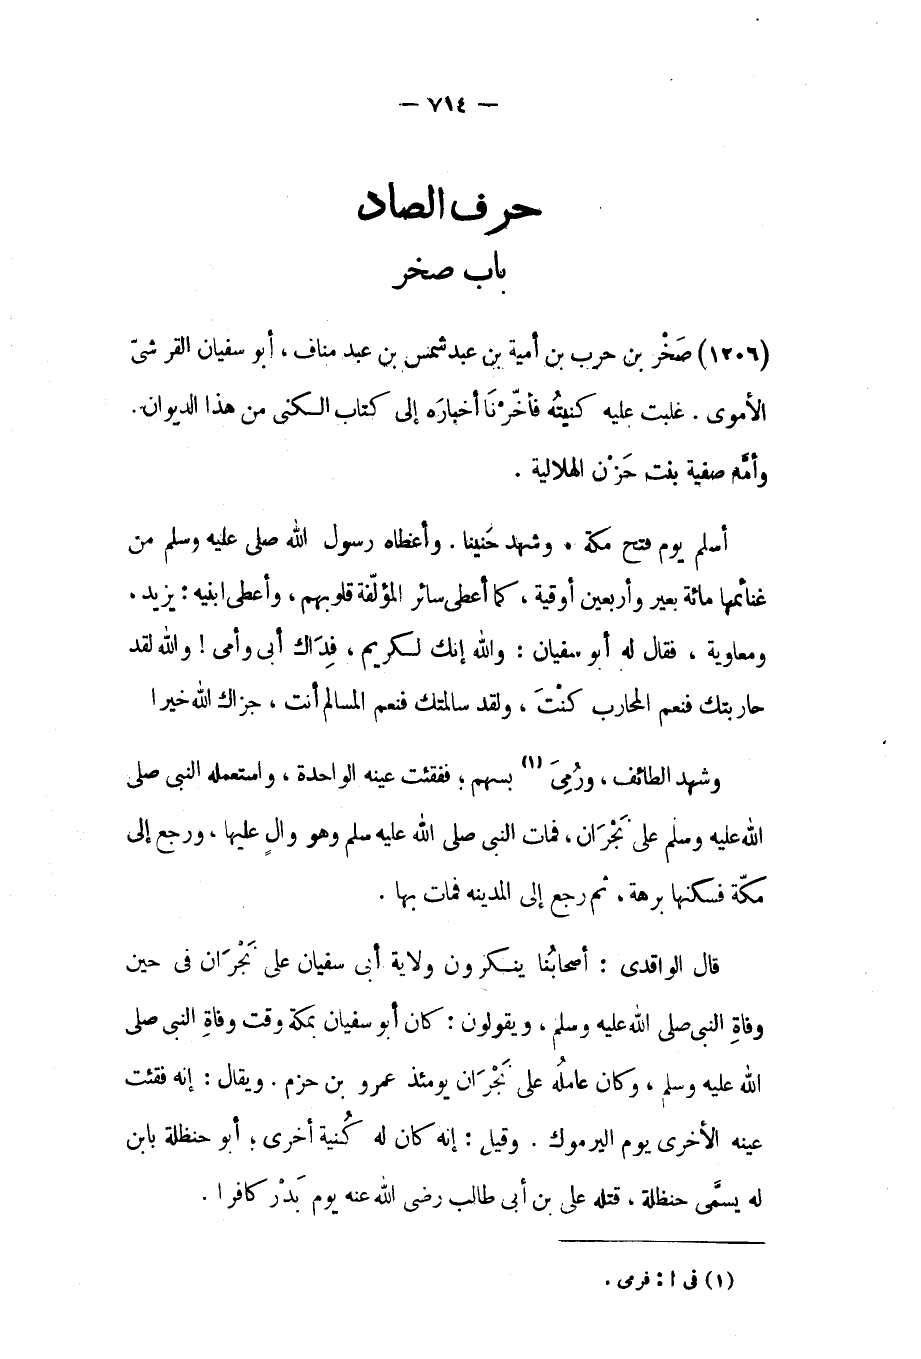 — ٧١٤ —
حرف الصاد
باب صخر
(١٢٠٦) صَخْر بن حرب بن أمية بن عبد شمس بن عبد مناف ، أبو سفيان القرشىّ
الأموى . غلبت عليه كنيتُه فأخّرْنَا أخبارَه إلى كتاب الكنى من هذا الديوان .
وأمّه صفية بنت حَزْن الهلالية .
أسلم يوم فتح مكة . وشهد حَنينا . وأعطاه رسول الله صلى عليه وسلم من
غنائمها مائة بعير وأربعين أوقية ، كما أعطى سائر المؤلّفة قلوبهم ، وأعطى ابنيه : يزيد .
ومعاوية ، فقال له أبو سفيان : والله إنك لكريم ، فِدَاك أبى وأمى ! والله لقد
حاربتك فنعم المحارب كنْتَ ، ولقد سالمتك فنعم المسالم أنت ، جزاك الله خيرا
وشهد الطائف ، ورُمِىَ (١) بسهم ، ففقئت عينه الواحدة ، واستعمله النبى صلى
الله عليه وسلم على نَجْرَان ، فمات النبى صلى الله عليه سلم وهو والٍ عليها ، ورجع إلى
مكّة فسكنها برهة ، ثم رجع إلى المدينه فمات بها .
قال الواقدى : أصحابُنا ينكرون ولاية أبى سفيان على نَجْرَان فى حين
وفاةِ النبى صلى الله عليه وسلم ، ويقولون : كان أبو سفيان بمكة وقت وفاةِ النبى صلى
الله عليه وسلم ، وكان عاملُه على نَجْرَان يومئذ عمرو بن حزم . ويقال : إنه فقئت
عينه الأخرى يوم اليرموك . وقيل : إنه كان له كُنية أخرى ؛ أبو حنظلة بابن
له يسمَّى حنظلة ، قتله على بن أبى طالب رضى الله عنه يوم بَدْر كافرا .
(١) فى ا : فرمى .